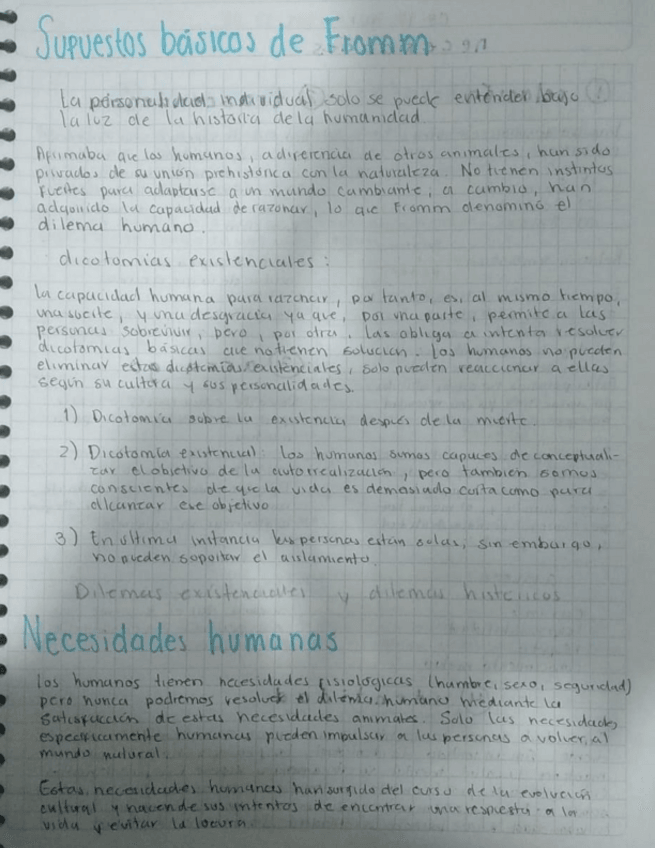 Supuestos básicos de Fromm
La personalidad individual solo se puede entender bajo
la luz de la historia de la humanidad.
Afirmaba que los humanos, a diferencia de otros animales, han sido
privados de su unión prehistórica con la naturaleza. No tienen instintos
fuertes para adaptarse a un mundo cambiante, a cambio, han
adquirido la capacidad de razonar, lo que Fromm denominó el
dilema humano.
dicotomias existenciales:
La capacidad humana para razonar, por tanto, es, al mismo tiempo,
una suerte, y una desgracia ya que, por una parte, permite a las
personas sobrevivir, pero, por otra, las obliga a intentar resolver
dicotomias básicas que no tienen solucion. Los humanos no pueden
eliminar estas dicotomias existenciales, solo pueden reaccionar a ellas
según su cultura y sus personalidades.
1) Dicotomia sobre la existencia después de la muerte.
2) Dicotomía existencial: Los humanos somos capaces de conceptuali-
zar el objetivo de la autorrealización, pero tambien somos
conscientes de que la vida es demasiado corta como para
alcanzar ese objetivo
3) En ultima instancia las personas están solas, sin embargo,
no pueden soportar el aislamiento.
Dilemas existenciales y dilemas históricos
Necesidades humanas
los humanos tienen necesidades fisiológicas (hambre, sexo, seguridad)
pero nunca podremos resolver el dilema humano mediante la
satisfacción de estas necesidades animales. Solo las necesidades
especificamente humanas pueden impulsar a las personas a volver al
mundo natural.
Estas necesidades humanas han surgido del curso de la evolución
cultural y nacen de sus intentos de encontrar una respuesta a la
vida y evitar la locura.